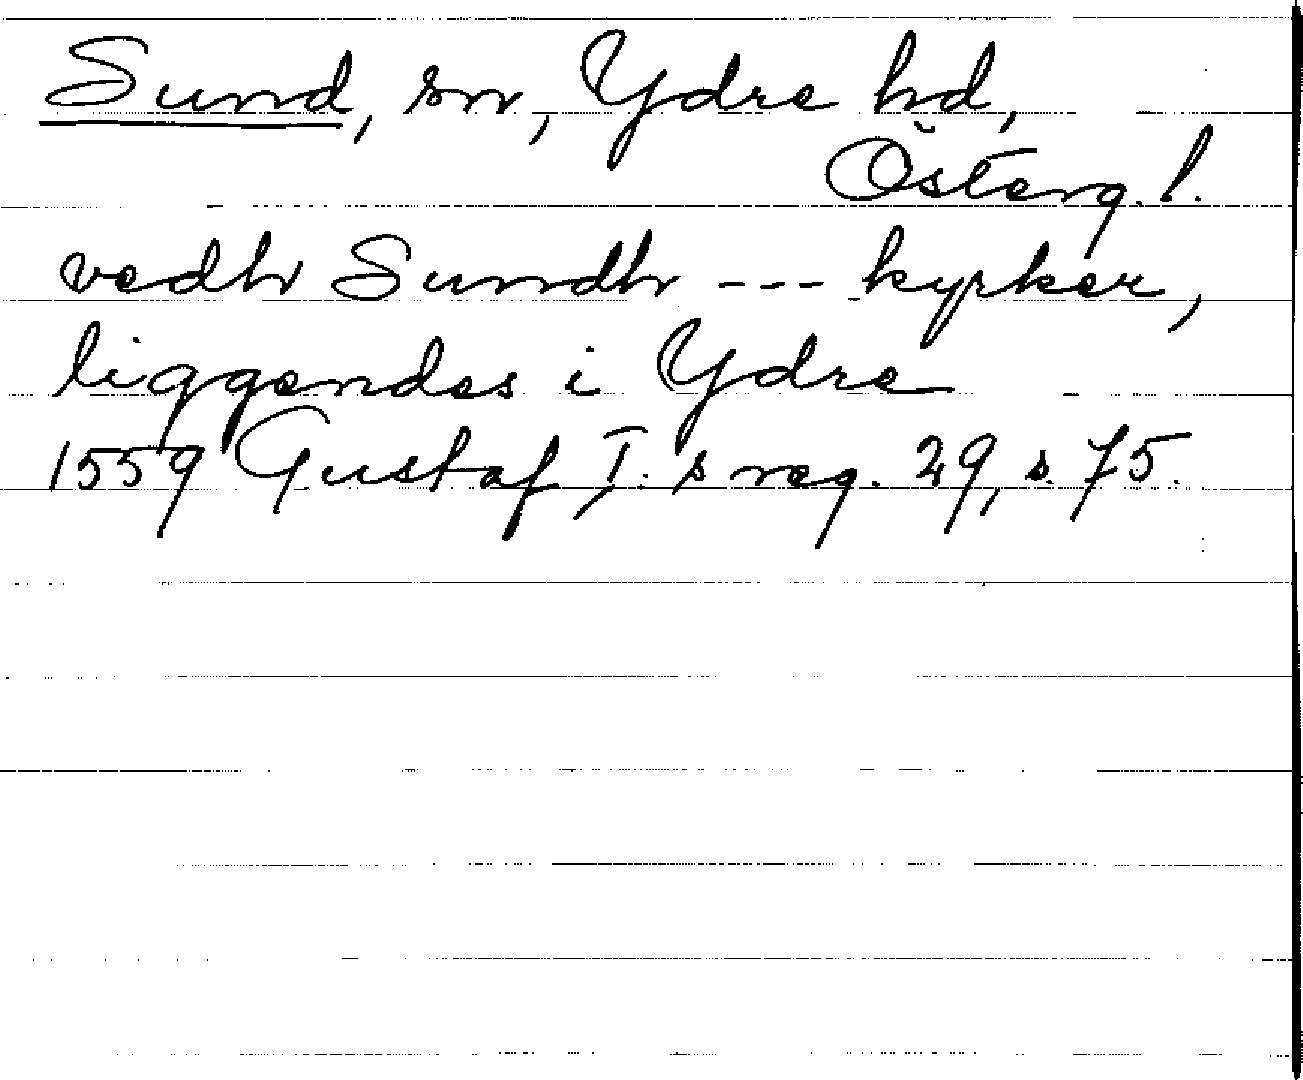 Sund, sn, Ydre hd,
Österg. l.
vedh Sundh --- kyrker,
liggendes i Ydre
1559 Gustaf I. s reg. 29, s. 75.